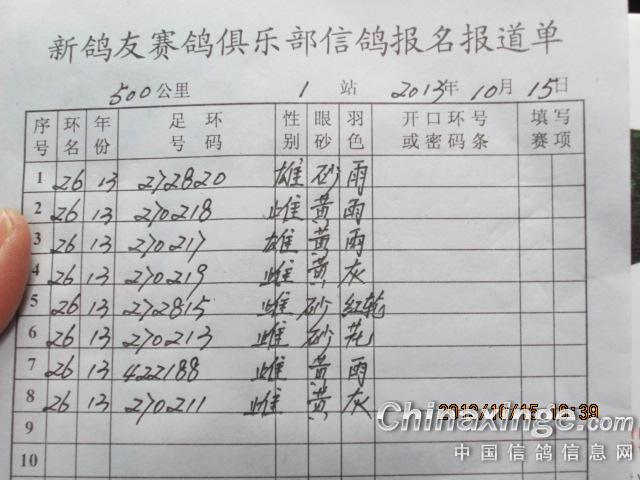 新鸽友赛鸽俱乐部信鸽报名报道单
500公里 1 站 2013年 10月 15日
序号 环名 年份 足环号码 性别 眼砂 羽色 开口环号或密码条 填写赛项
1 26 13 272820 雄 砂 雨
2 26 13 270218 雌 黄 雨
3 26 13 270217 雄 黄 雨
4 26 13 270219 雌 黄 灰
5 26 13 272815 雌 砂 红轮
6 26 13 270213 雌 砂 花
7 26 13 422188 雌 黄 雨
8 26 13 270211 雌 黄 灰
9
10
Chinaxinge.com
中国信鸽信息网